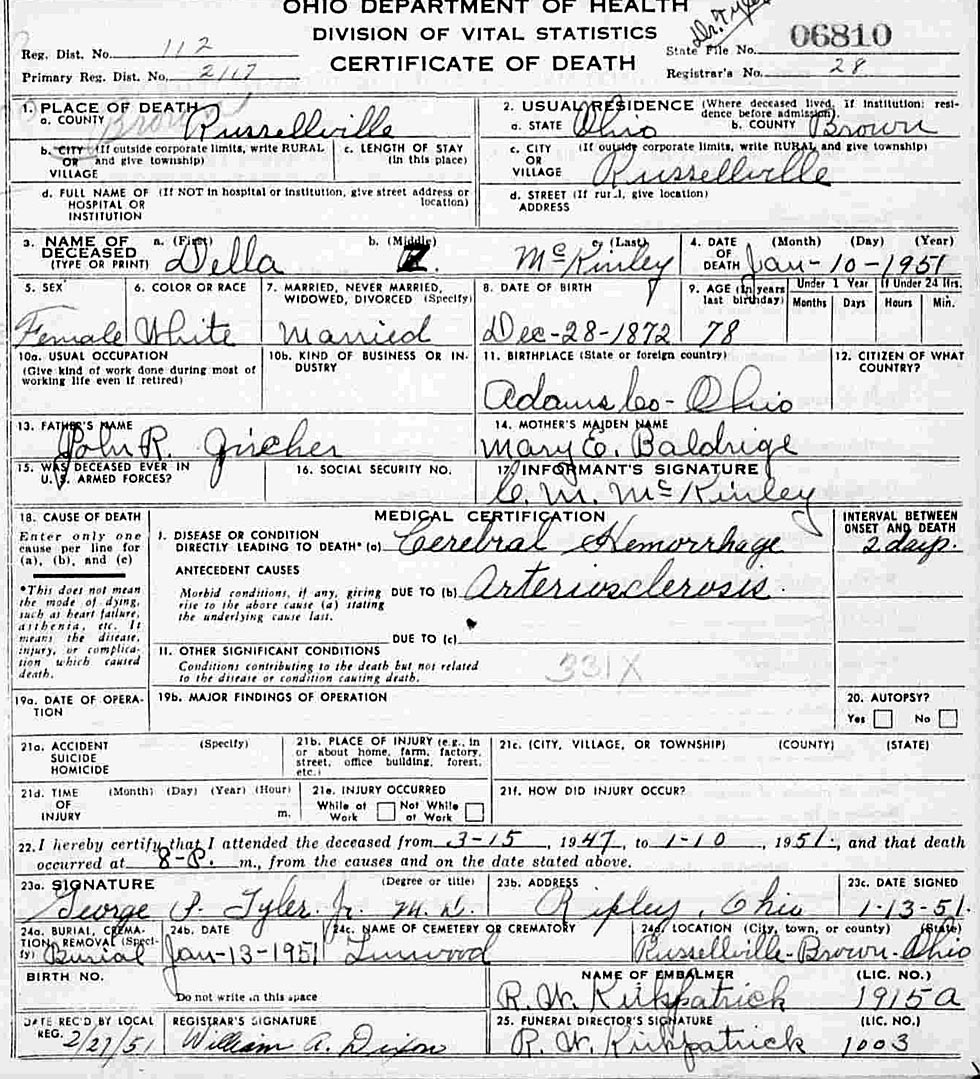 OHIO DEPARTMENT OF HEALTH
DIVISION OF VITAL STATISTICS
CERTIFICATE OF DEATH
Reg. Dist. No. 112
Primary Reg. Dist. No. 2117
Dr. Tyler
State File No. 06810
Registrar's No. 28
1. PLACE OF DEATH
a. COUNTY Brown Russellville
b. CITY (If outside corporate limits, write RURAL
OR and give township)
VILLAGE
c. LENGTH OF STAY
(in this place)
d. FULL NAME OF (If NOT in hospital or institution, give street address or
HOSPITAL OR location)
INSTITUTION
2. USUAL RESIDENCE (Where deceased lived, If institution: resi-
dence before admission).
a. STATE Ohio b. COUNTY Brown
c. CITY (If outside corporate limits, write RURAL and give township)
OR
VILLAGE Russellville
d. STREET (If rural, give location)
ADDRESS
3. NAME OF a. (First) b. (Middle) c. (Last)
DECEASED
(TYPE OR PRINT) Della McKinley
4. DATE (Month) (Day) (Year)
OF
DEATH Jan-10-1951
5. SEX
Female
6. COLOR OR RACE
White
7. MARRIED, NEVER MARRIED,
WIDOWED, DIVORCED (Specify)
Married
8. DATE OF BIRTH
Dec-28-1872
9. AGE (In years
last birthday)
78
Under 1 Year
Months Days
If Under 24 Hrs.
Hours Min.
10a. USUAL OCCUPATION
(Give kind of work done during most of
working life even if retired)
10b. KIND OF BUSINESS OR IN-
DUSTRY
11. BIRTHPLACE (State or foreign country)
Adams Co- Ohio
12. CITIZEN OF WHAT
COUNTRY?
13. FATHER'S NAME
John R.
14. MOTHER'S MAIDEN NAME
Mary E. Baldrige
15. WAS DECEASED EVER IN
U. S. ARMED FORCES?
16. SOCIAL SECURITY NO.
17. INFORMANT'S SIGNATURE
C. M. McKinley
18. CAUSE OF DEATH
Enter only one
cause per line for
(a), (b), and (c)
*This does not mean
the mode of dying,
such as heart failure,
asthenia, etc. It
means the disease,
injury, or complica-
tion which caused
death.
MEDICAL CERTIFICATION
I. DISEASE OR CONDITION
DIRECTLY LEADING TO DEATH* (a) Cerebral Hemorrhage
ANTECEDENT CAUSES
Morbid conditions, if any, giving DUE TO (b) Arteriosclerosis.
rise to the above cause (a) stating
the underlying cause last.
DUE TO (c)
II. OTHER SIGNIFICANT CONDITIONS
Conditions contributing to the death but not related
to the disease or condition causing death.
331X
INTERVAL BETWEEN
ONSET AND DEATH
2 days.
19a. DATE OF OPERA-
TION
19b. MAJOR FINDINGS OF OPERATION
20. AUTOPSY?
Yes No
21a. ACCIDENT (Specify)
SUICIDE
HOMICIDE
21b. PLACE OF INJURY (e.g., in
or about home, farm, factory,
street, office building, forest,
etc.)
21c. (CITY, VILLAGE, OR TOWNSHIP) (COUNTY) (STATE)
21d. TIME (Month) (Day) (Year) (Hour)
OF
INJURY m.
21e. INJURY OCCURRED
While at Not While
Work at Work
21f. HOW DID INJURY OCCUR?
22. I hereby certify that I attended the deceased from 3-15, 1947, to 1-10, 1951, and that death
occurred at 8-P. m., from the causes and on the date stated above.
23a. SIGNATURE (Degree or title)
George P. Tyler. Jr. M. D.
23b. ADDRESS
Ripley, Ohio
23c. DATE SIGNED
1-13-51.
24a. BURIAL, CREMA-
TION, REMOVAL (Speci-
fy) Burial
24b. DATE
Jan-13-1951
24c. NAME OF CEMETERY OR CREMATORY
Linwood
24d. LOCATION (City, town, or county) (State)
Russellville-Brown-Ohio
BIRTH NO.
Do not write in this space
NAME OF EMBALMER (LIC. NO.)
R. W. Kirkpatrick 1915A
DATE REC'D BY LOCAL
REG. 2/27/51
REGISTRAR'S SIGNATURE
William A. Dixon
25. FUNERAL DIRECTOR'S SIGNATURE (LIC. NO.)
R. W. Kirkpatrick 1003